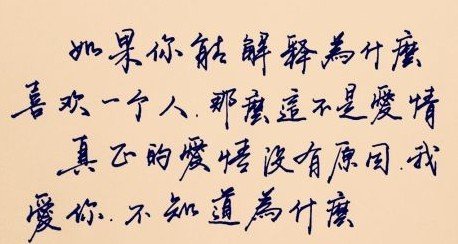 如果你能解釋為什麼
喜欢一个人.那麼這不是愛情
真正的愛情没有原因.我
愛你.不知道為什麼